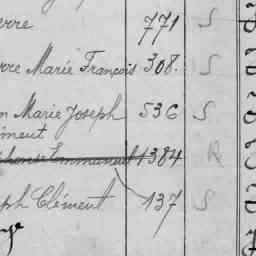 erre 771 S
rre Marie François 308. S
n Marie Joseph 536 S
ément
phonse Emmanuel 1384 R
ph Clément 137 S